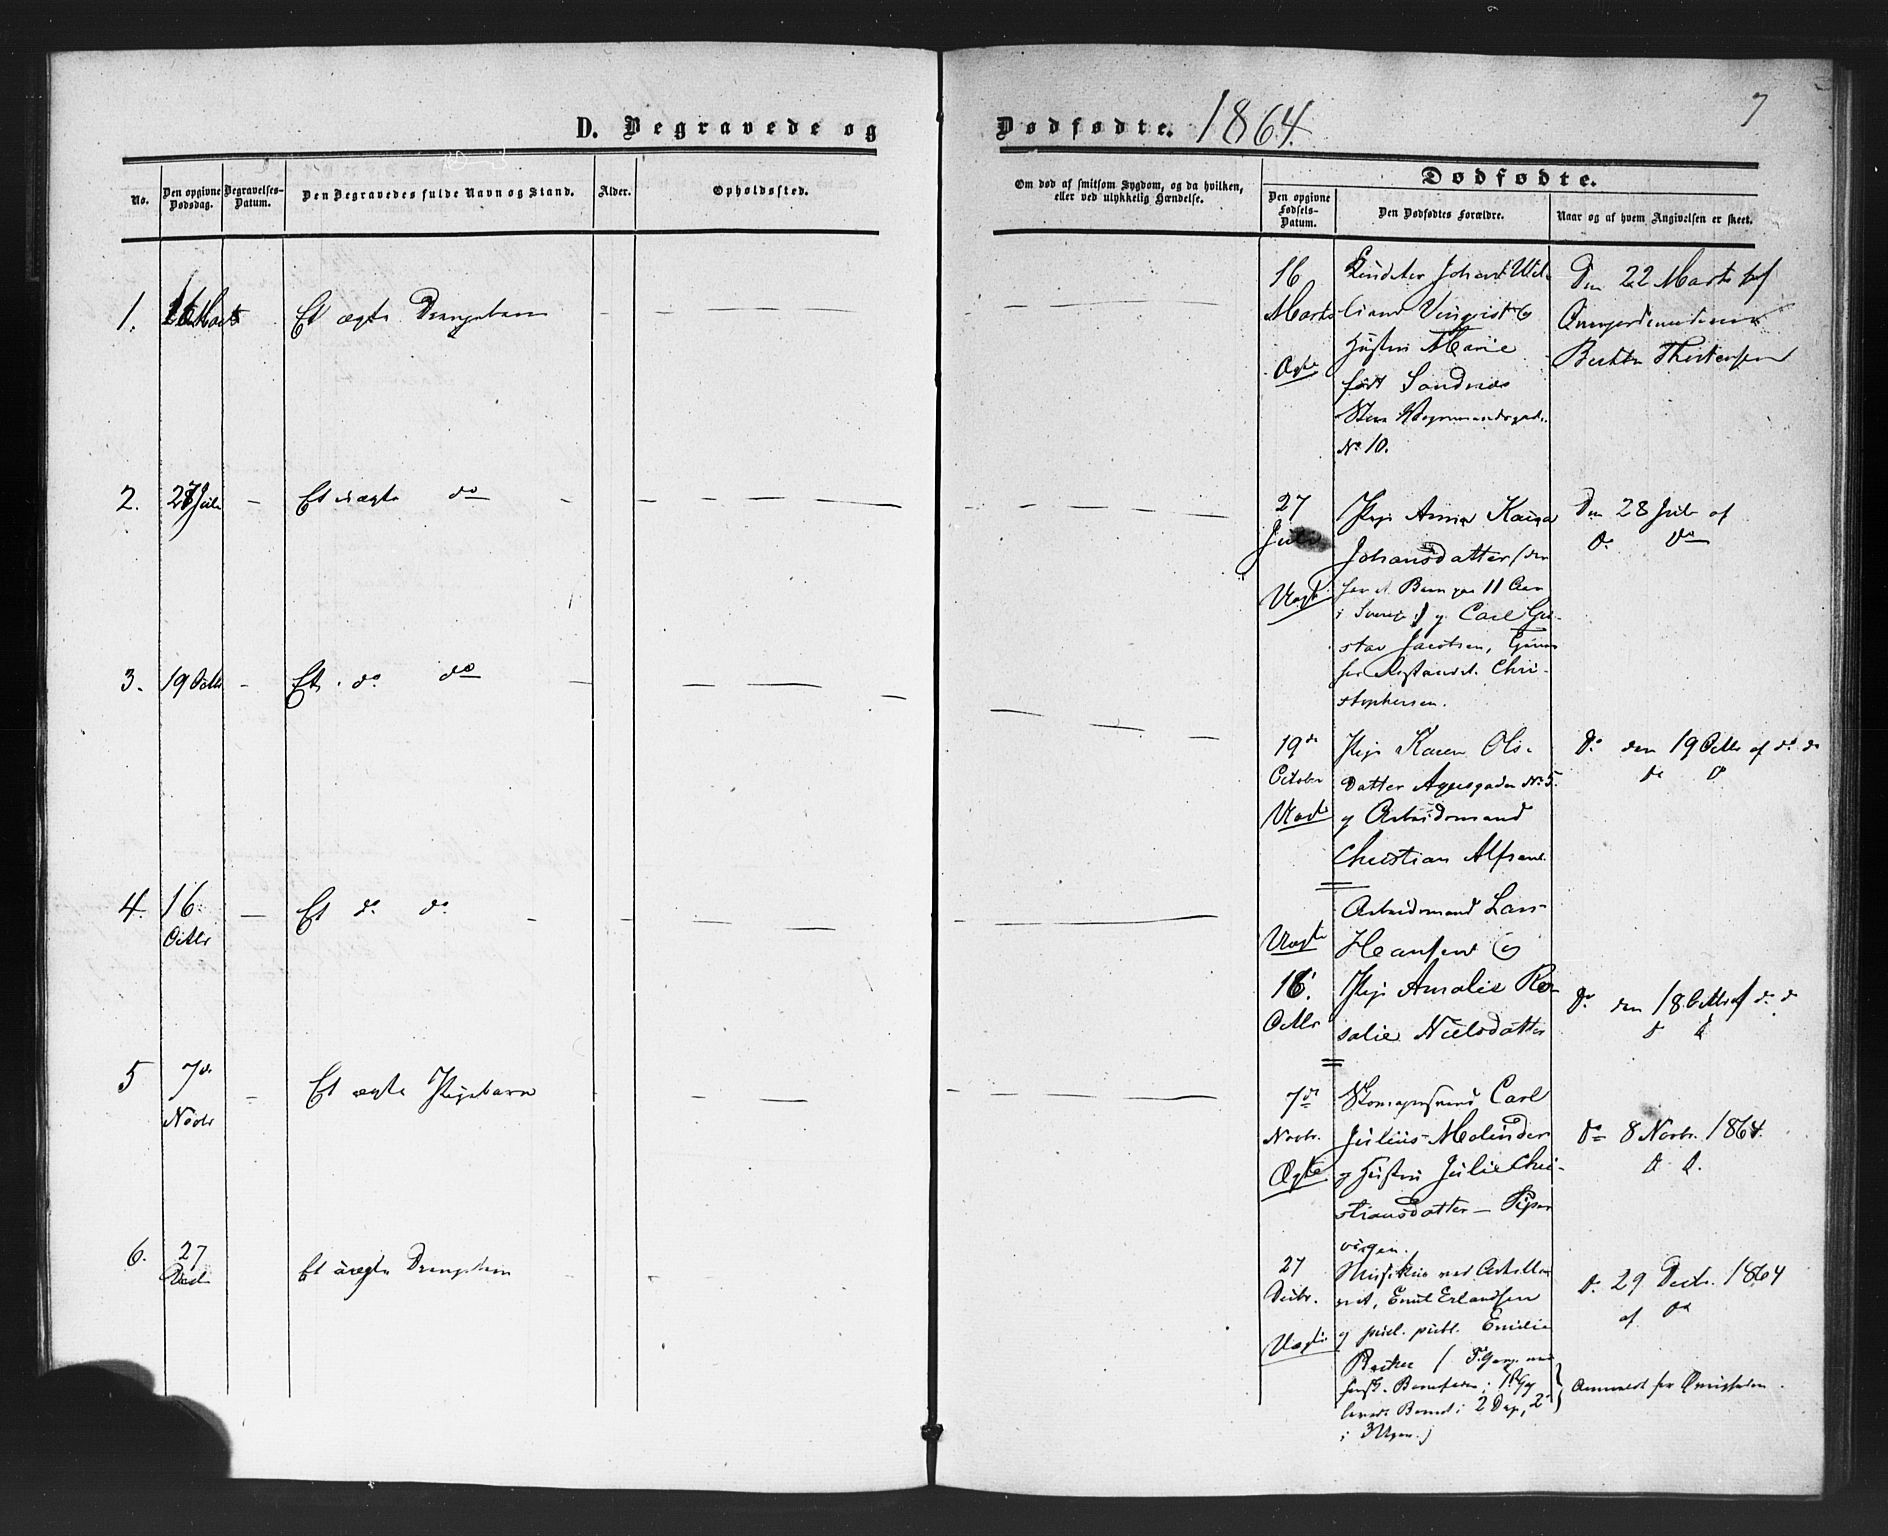 D. Begravede og
Dødfødte. 1864.
7
No.
Den opgivne Dødsdag.
Begravelses-Datum.
Den Begravedes fulde Navn og Stand.
Alder.
Opholdssted.
Om død af smitsom Sygdom, og da hvilken, eller ved ulykkelig Hændelse.
Dødfødte.
Den opgivne Fødsels-Datum.
Den Dødfødtes Forældre.
Naar og af hvem Angivelsen er skeet.
1. 16 Marts Et ægte Drengebarn
16 Marts
Ægte
Johan
Hustru Marie
født Sandnæs
No 10.
Den 22 Marts af
2. 27 Juli - Et uægte do
27
Juli
Uægte
Pige Anna Kaisa
Johansdatter (der
før et Barn paa 11 Aar
i Sverige) og Carl Gu-
stav Jacobsen,
Chri-
stophersen.
Den 28 Juli af
Do do
3. 19 Octbr - Et do do
19de
October
Uægte
Pige Karen Ols-
datter Aggersgaden No 5.
og Arbeidsmand
Christian
Do den 19 Octbr af do do
do do
4. 16 Octbr - Et do do
Uægte
16.
Octbr
Arbeidsmand Lars
Hansen og
Pige Amalie Ro-
salie Nielsdatter
Do den 18 Octbr af do do
5 7de Novbr - Et ægte Pigebarn
7de
Novbr.
Ægte
Skomagersvend Carl
Julius Melinder
og Hustru Julie Chri-
stiansdatter - Piper
vigen.
Do 8 Novbr. 1864.
6. 27 Decbr Et uægte Drengebarn
27
Decbr.
Uægte
Musikus ved Artille-
riet, Emil Erlandsen
og Emilie
i 2 Dage, 2
i 3 Ugen.)
Do 29 Decbr. 1864
af do
Anmeldt for